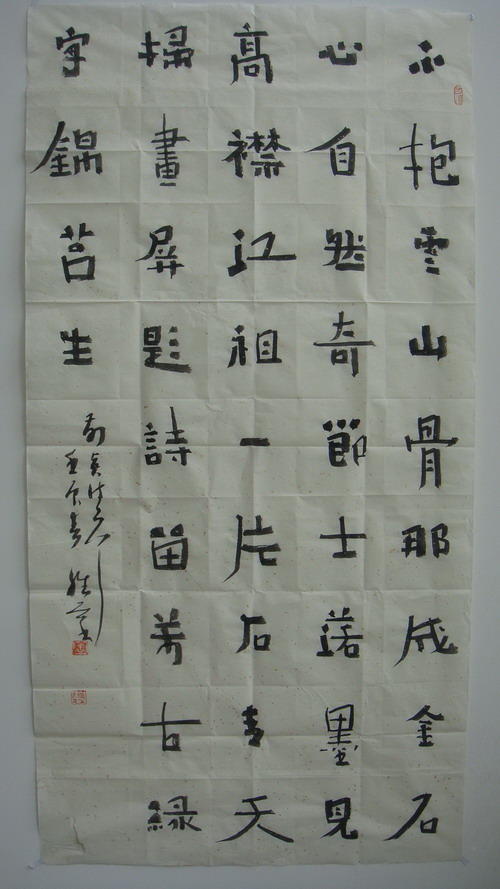 不抱雲山骨那成金石
心自然奇節士落墨見
高襟江祖一片石青天
掃畫屏題詩留萬古綠
字錦苔生
壬辰春